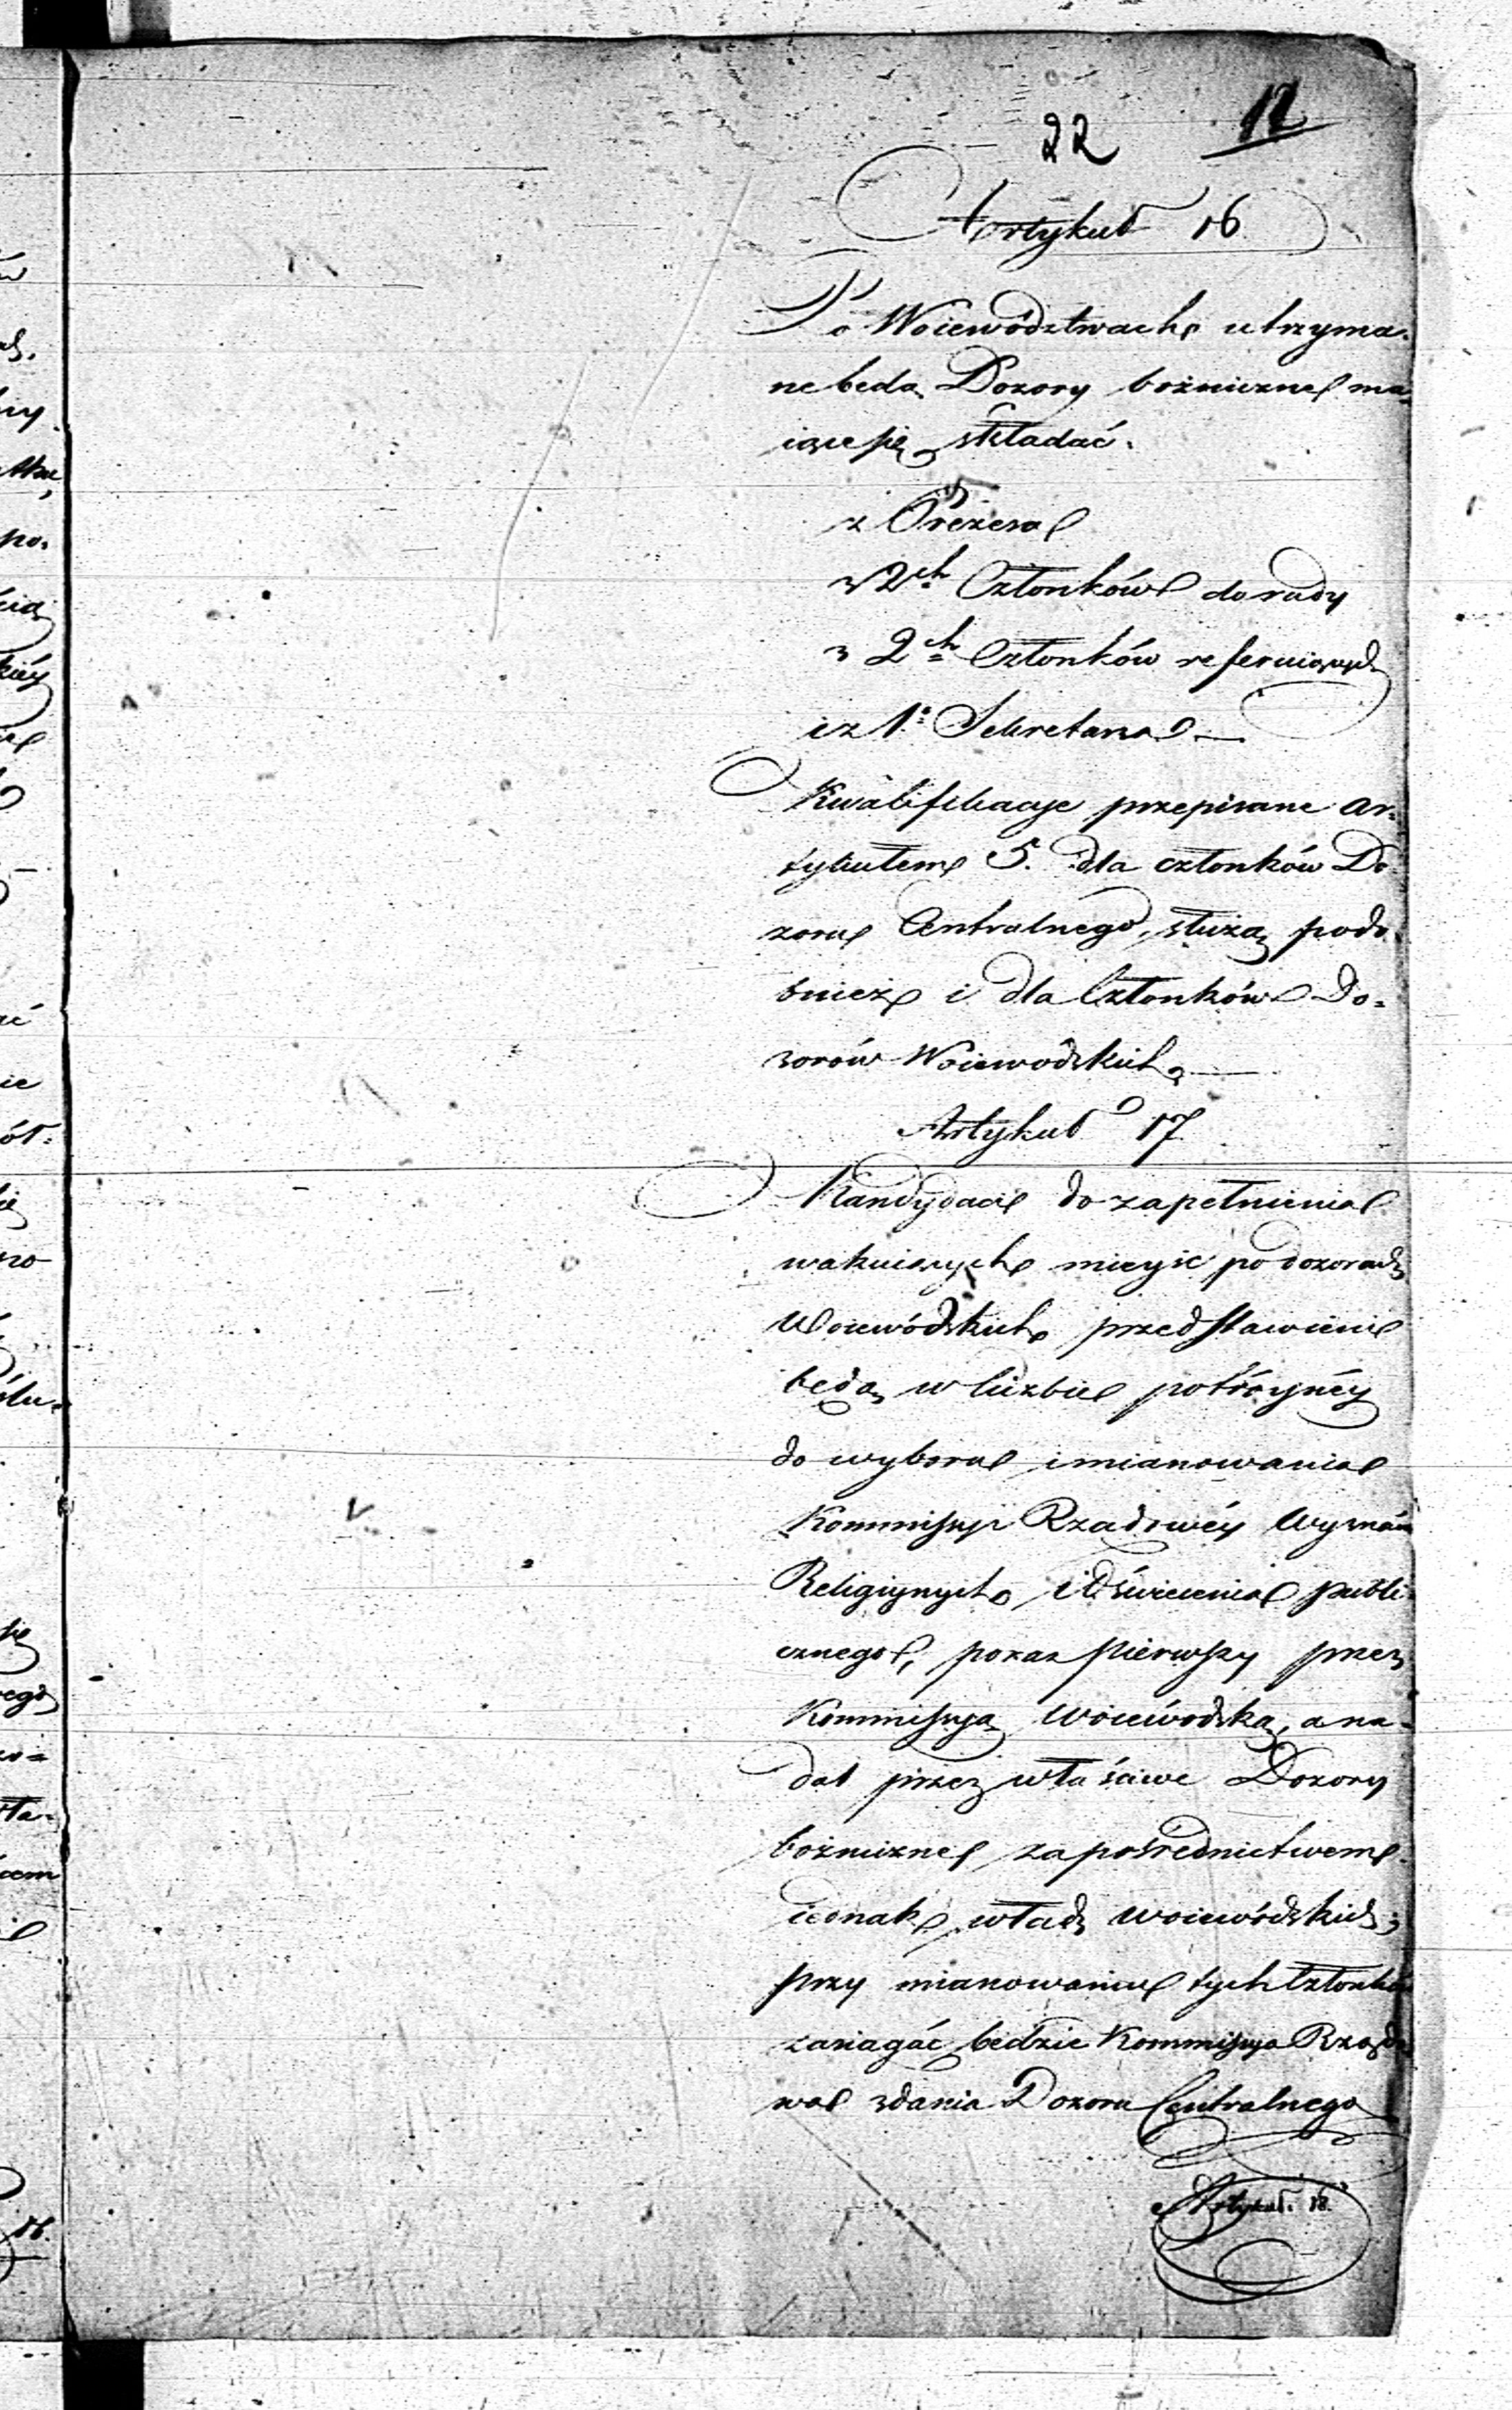 22 12
Artykuł 16
Po Woiewództwach utrzyma=
ne będą Dozory bożnicze ma=
iące się składać.
z Prezesa
z 2ch Członków do rady
z 2ch Członków referuiących
i z 1. Sekretarza
Kwalifikacye przepisane ar=
tykułem 5. dla członków Do=
zoru Centralnego, służą podo=
bnież i dla Członków Do=
zorów Woiewódzkich
Artykuł 17
Kandydaci do zapełnienia
wakuiących mieysc po dozorach
Woiewódzkich przedstawieni
będą w liczbie potróynéy
do wyboru i mianowania
Kommissyi Rządowéy Wyznań
Religiynych i Oświecenia publi=
cznego, poraz pierwszy przez
Kommissyą Woiewódzką, a na=
dal przez właściwe Dozory
bożnicze za pośrednictwem
iednak władz woiewódzkich;
przy mianowaniu tych Członków
zasiągać będzie Kommissya Rządo
wa zdania Dozoru Centralnego
Artykuł. 18.
ów
po.
kiéy
ać
ie
ól=
się
no
iego
zo=
sta=
cem
16.